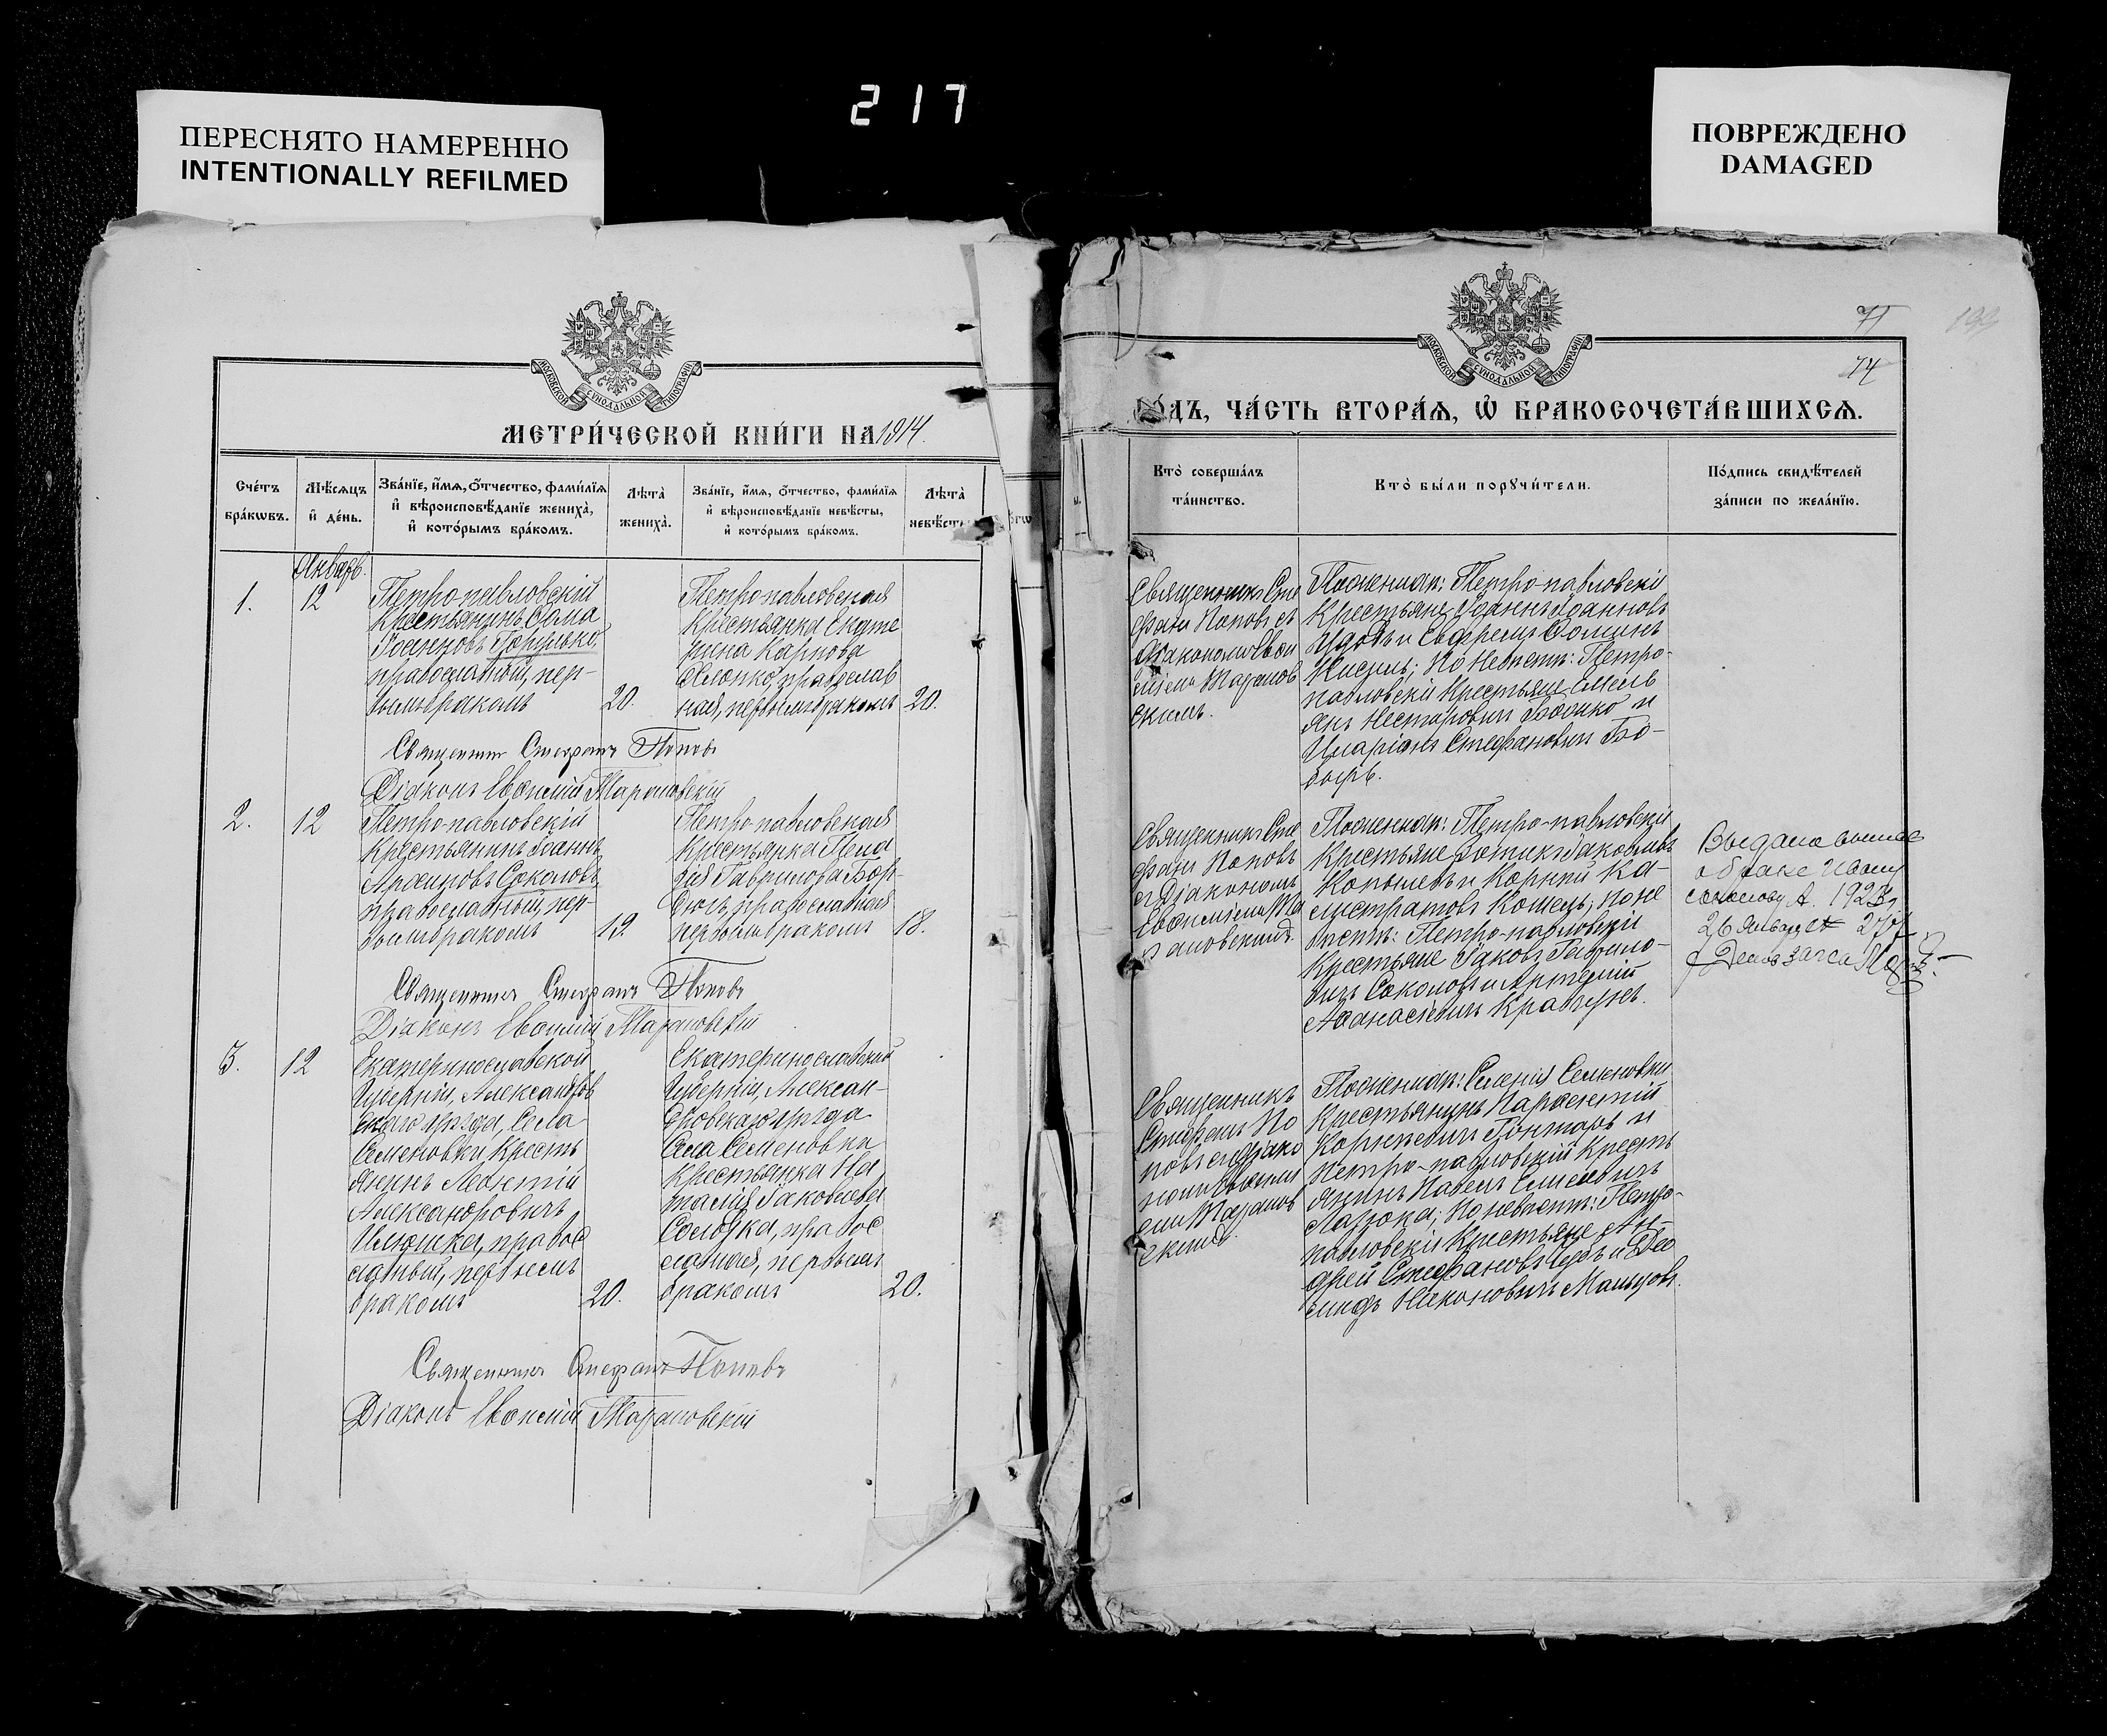 217
ПЕРЕСНЯТО НАМЕРЕННО
INTENTIONALLY REFILMED
ПОВРЕЖДЕНО
DAMAGED
МОСКОВСКОЙ СѴНОДАЛЬНОЙ ТИПОГРАФІИ
МЕТРИ́ЧЕСКОЙ КНИ́ГИ НА 1914.
Сче́тъ бра́кѡвъ.
Мѣ́сѧцъ и҆ де́нь.
Зва́нїе, и҆́мѧ, ѻ҆́тчество, фами́лїѧ
и҆ вѣроисповѣ́данїе жениха̀,
и҆ кото́рымъ бра́комъ.
Лѣ́та̀ жениха̀.
Зва́нїе, и҆́мѧ, ѻ҆́тчество, фами́лїѧ
и҆ вѣроисповѣ́данїе невѣ́сты,
и҆ кото́рымъ бра́комъ.
Лѣ́та̀
невѣ́сты
Январь.
1.
12
Петропавловскій
крестьянинъ Ѳома
Іоанновъ Горулько,
православный, пер-
вымъ бракомъ
20.
Петропавловская
крестьянка Екате
рина Карпова
православ
ная, первымъ бракомъ
20.
Священникъ Стефанъ Поповъ
Діаконъ Евѳимій Тарановскій
2.
12
Петро-павловскій
крестьянинъ Іоаннъ
Соколовъ,
православный, пер-
вымъ бракомъ
19.
Петро-павловская
крестьянка Пела
гія Гаврилова Бор-
православная
первымъ бракомъ
18.
Священникъ Стефанъ Поповъ
Діаконъ Евѳимій Тарановскій
3.
12
Екатеринославской
губерніи, Александров
скаго уѣзда, села
Семеновки кресть
янинъ Леонтій
Александровичъ
Илюшка, правос
лавный, первымъ
бракомъ
20.
Екатеринославской
губерніи, Алексан-
дровскаго уѣзда
села Семеновки
крестьянка На
талія Іаковлева
Солодка, правос
лавная, первымъ
бракомъ
20.
Священникъ Стефанъ Поповъ
Діаконъ Евѳимій Тарановскій
МОСКОВСКОЙ СѴНОДАЛЬНОЙ ТИПОГРАФІИ
71
74
193
ГО́ДЪ, ЧА́СТЬ ВТОРА́Ѧ, Ѡ҆ БРАКОСОЧЕТА́ВШИХСѦ.
Кто̀ соверша́лъ
та́инство.
Кто̀ бы́ли порꙋчи́тели.
По́дпись свидѣ́телей
за́писи по жела́нїю.
Священникъ Сте
фанъ Поповъ съ
діакономъ Евѳи
міемъ Таранов
скимъ.
По женихѣ: Петро-павловскіе
крестьяне Іоаннъ Іоанновъ
и Ефремъ Ѳоминъ
Кисиль; по невѣстѣ: Петро-
павловскіе крестьяне Емель
янъ Несторовичъ Бойко и
Иларіонъ Стефановичъ Бо-
Священникъ Сте
фанъ Поповъ
съ діакономъ
Евѳиміемъ Та
рановскимъ.
По женихѣ: Петро-павловскіе
крестьяне Іаковлевъ
и Корнилій Ка-
листратовъ по не
вѣстѣ: Петро-павловскіе
крестьяне Іаковъ Гаврило-
вичъ Соколовъ и Артемій
Аѳанасіевичъ Кравчукъ.
о браке Ивану
Соколову А. 1923 г.
26 января 277
Священникъ
Стефанъ По
повъ съ діако
номъ Евѳимі
емъ Таранов
скимъ.
По женихѣ: Селенія Семеновки
крестьянинъ Парѳентій
Корнѣевичъ Гонтарь и
Петро-павловскій кресть
янинъ Павелъ
по невѣстѣ: Петро-
павловскіе крестьяне Ан-
дрей Стефановъ и Део
мидъ Никоновичъ